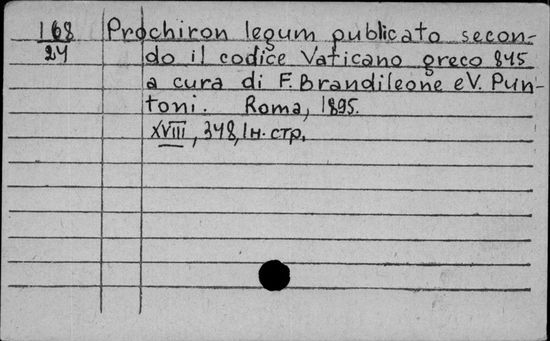 168 Prochiron legum publicato secon-
24 do il codice Vaticano greco 845
a cura di F. Brandileone e V. Pun-
toni. Roma, 1895.
XVIII, 348, 1 н. стр.